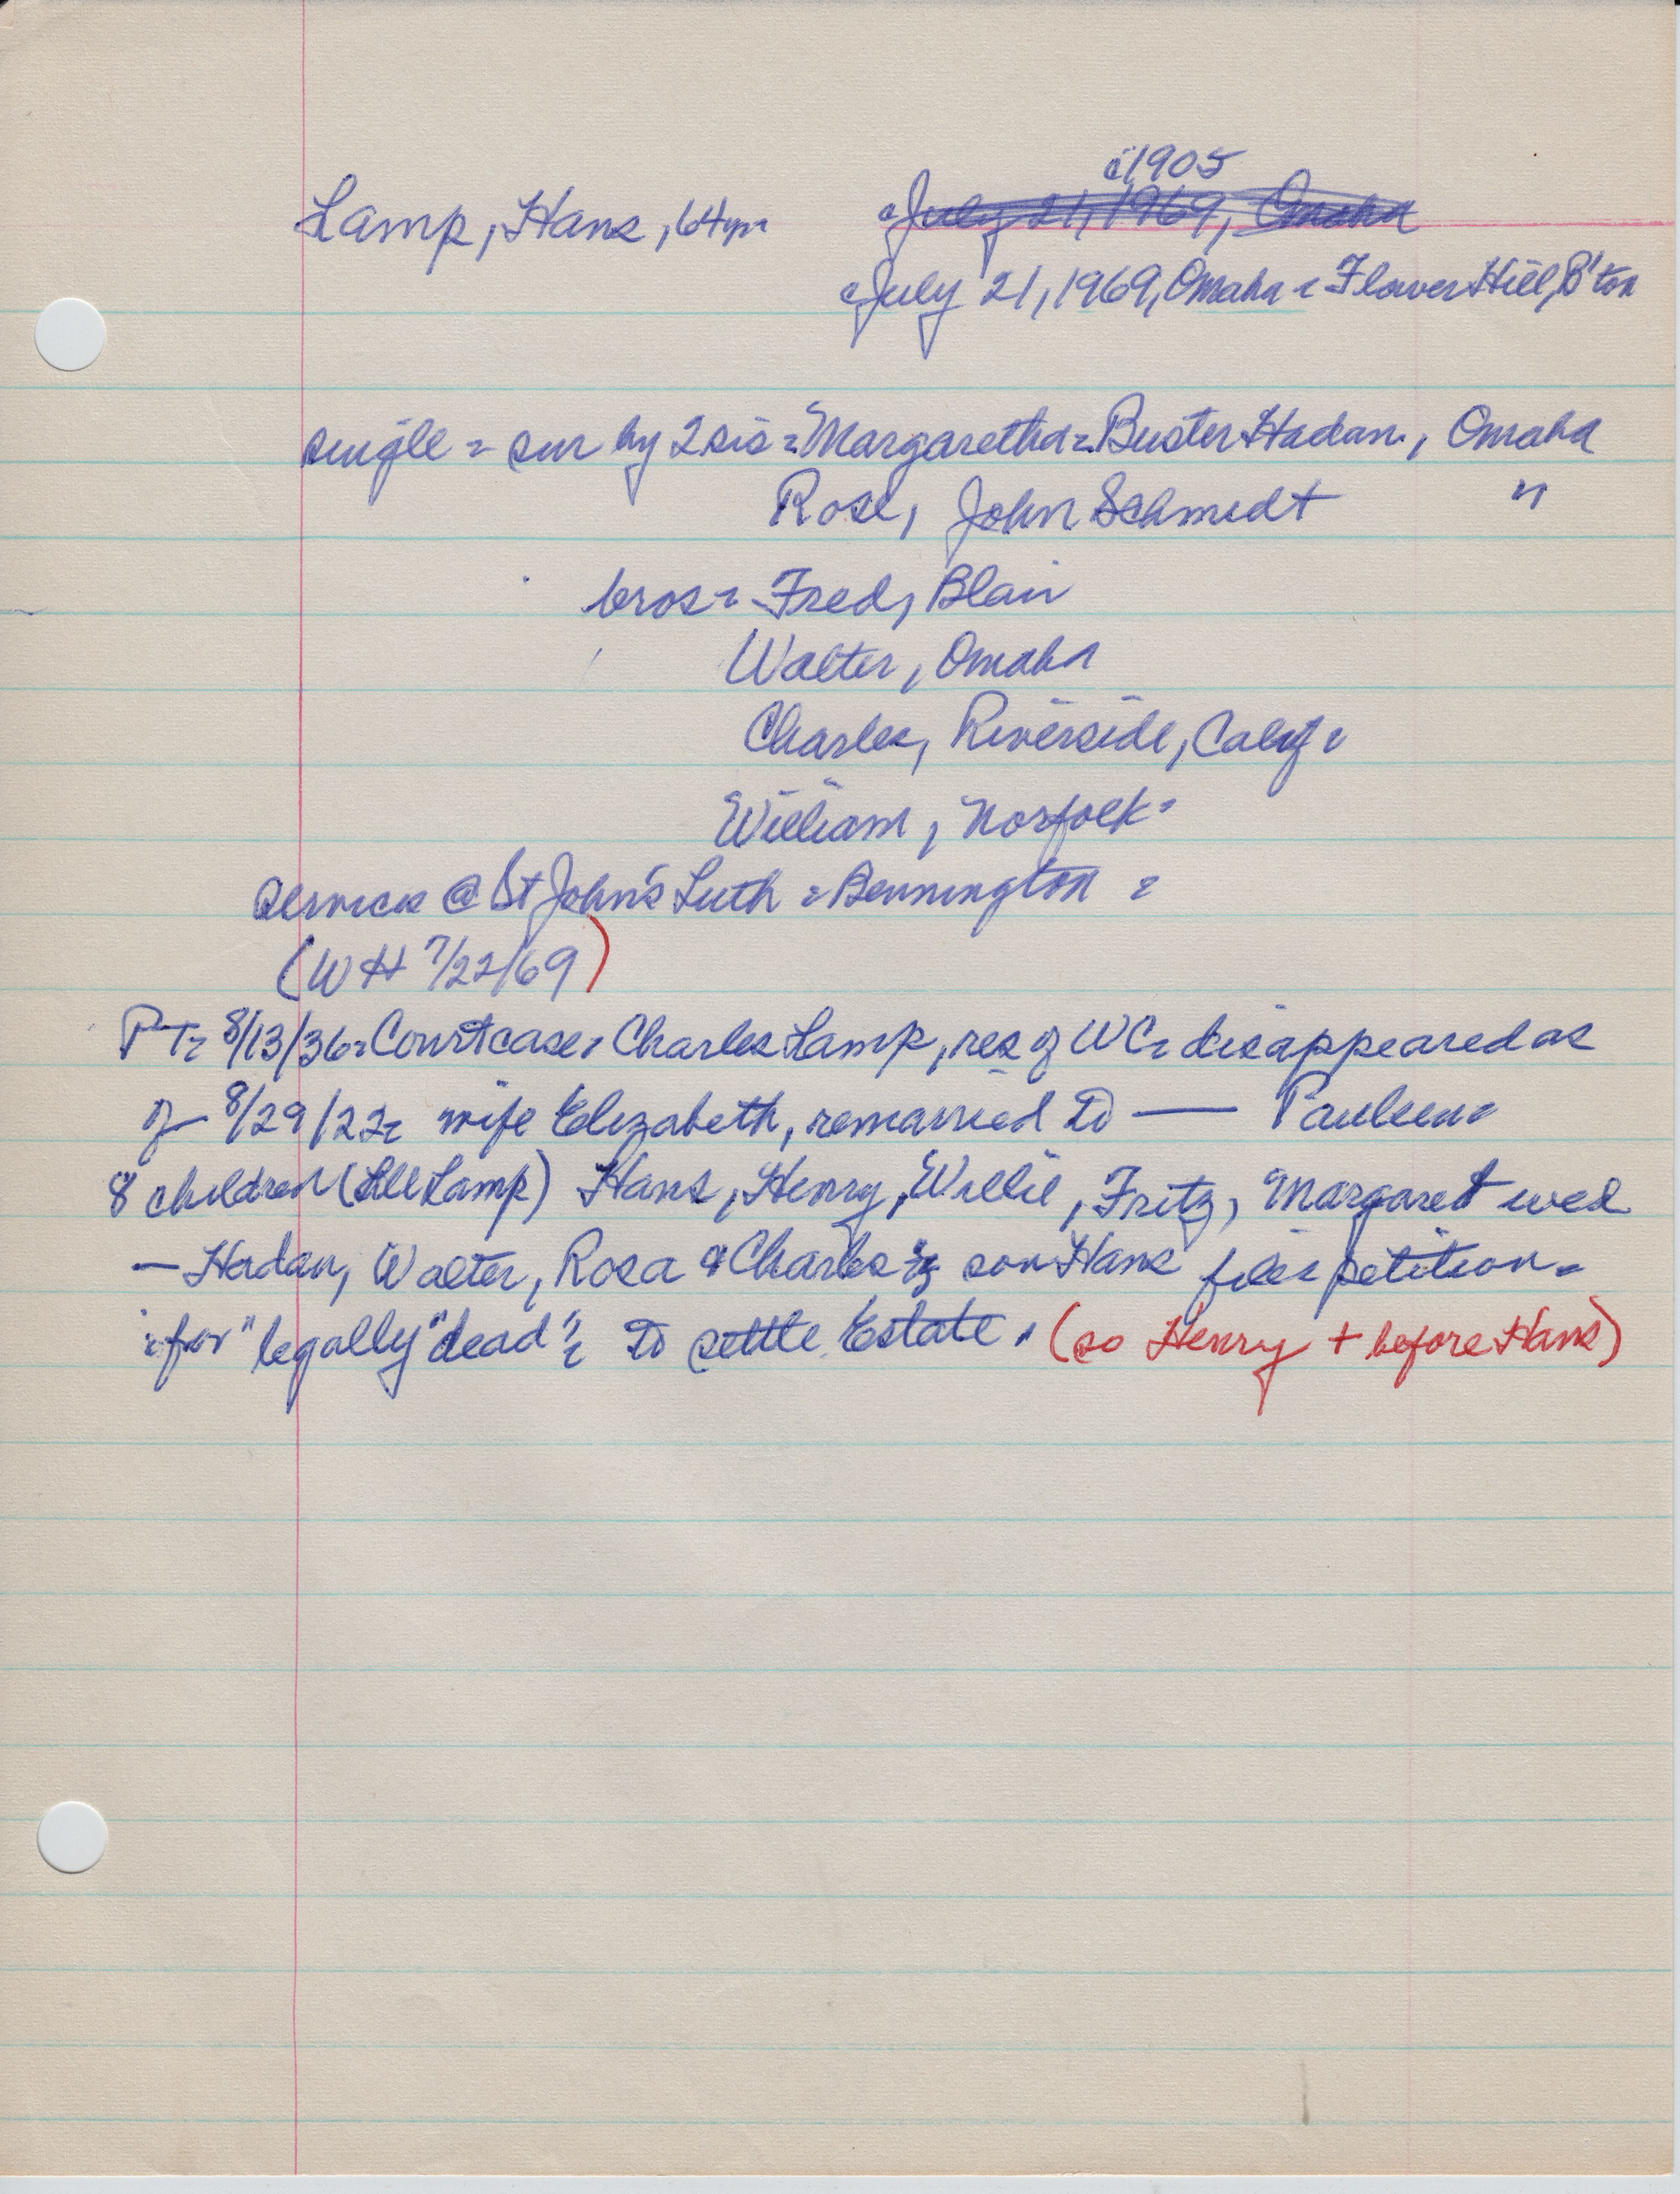 c1905
Lamp, Hans, 64yr July 21, 1969, Omaha
July 21, 1969, Omaha = Flower Hill, B'ton
single = sur by 2 sis = Margaretha = Buster Hadan, Omaha
Rose, John Schmidt "
bros = Fred, Blair
Walter, Omaha
Charles, Riverside, Calif =
William, Norfolk =
Services @ St John's Luth = Bennington =
(WH 7/22/69)
PT = 8/13/36 = Court case = Charles Lamp, res of WC = disappeared as
of 8/29/22 = wife Elizabeth, remarried to — Paulsen =
8 children (All Lamp) Hans, Henry, Willie, Fritz, Margaret wed
— Hadan, Walter, Rosa & Charles = son Hans files petition =
= for "legally" dead" = to settle Estate. (so Henry + before Hans)